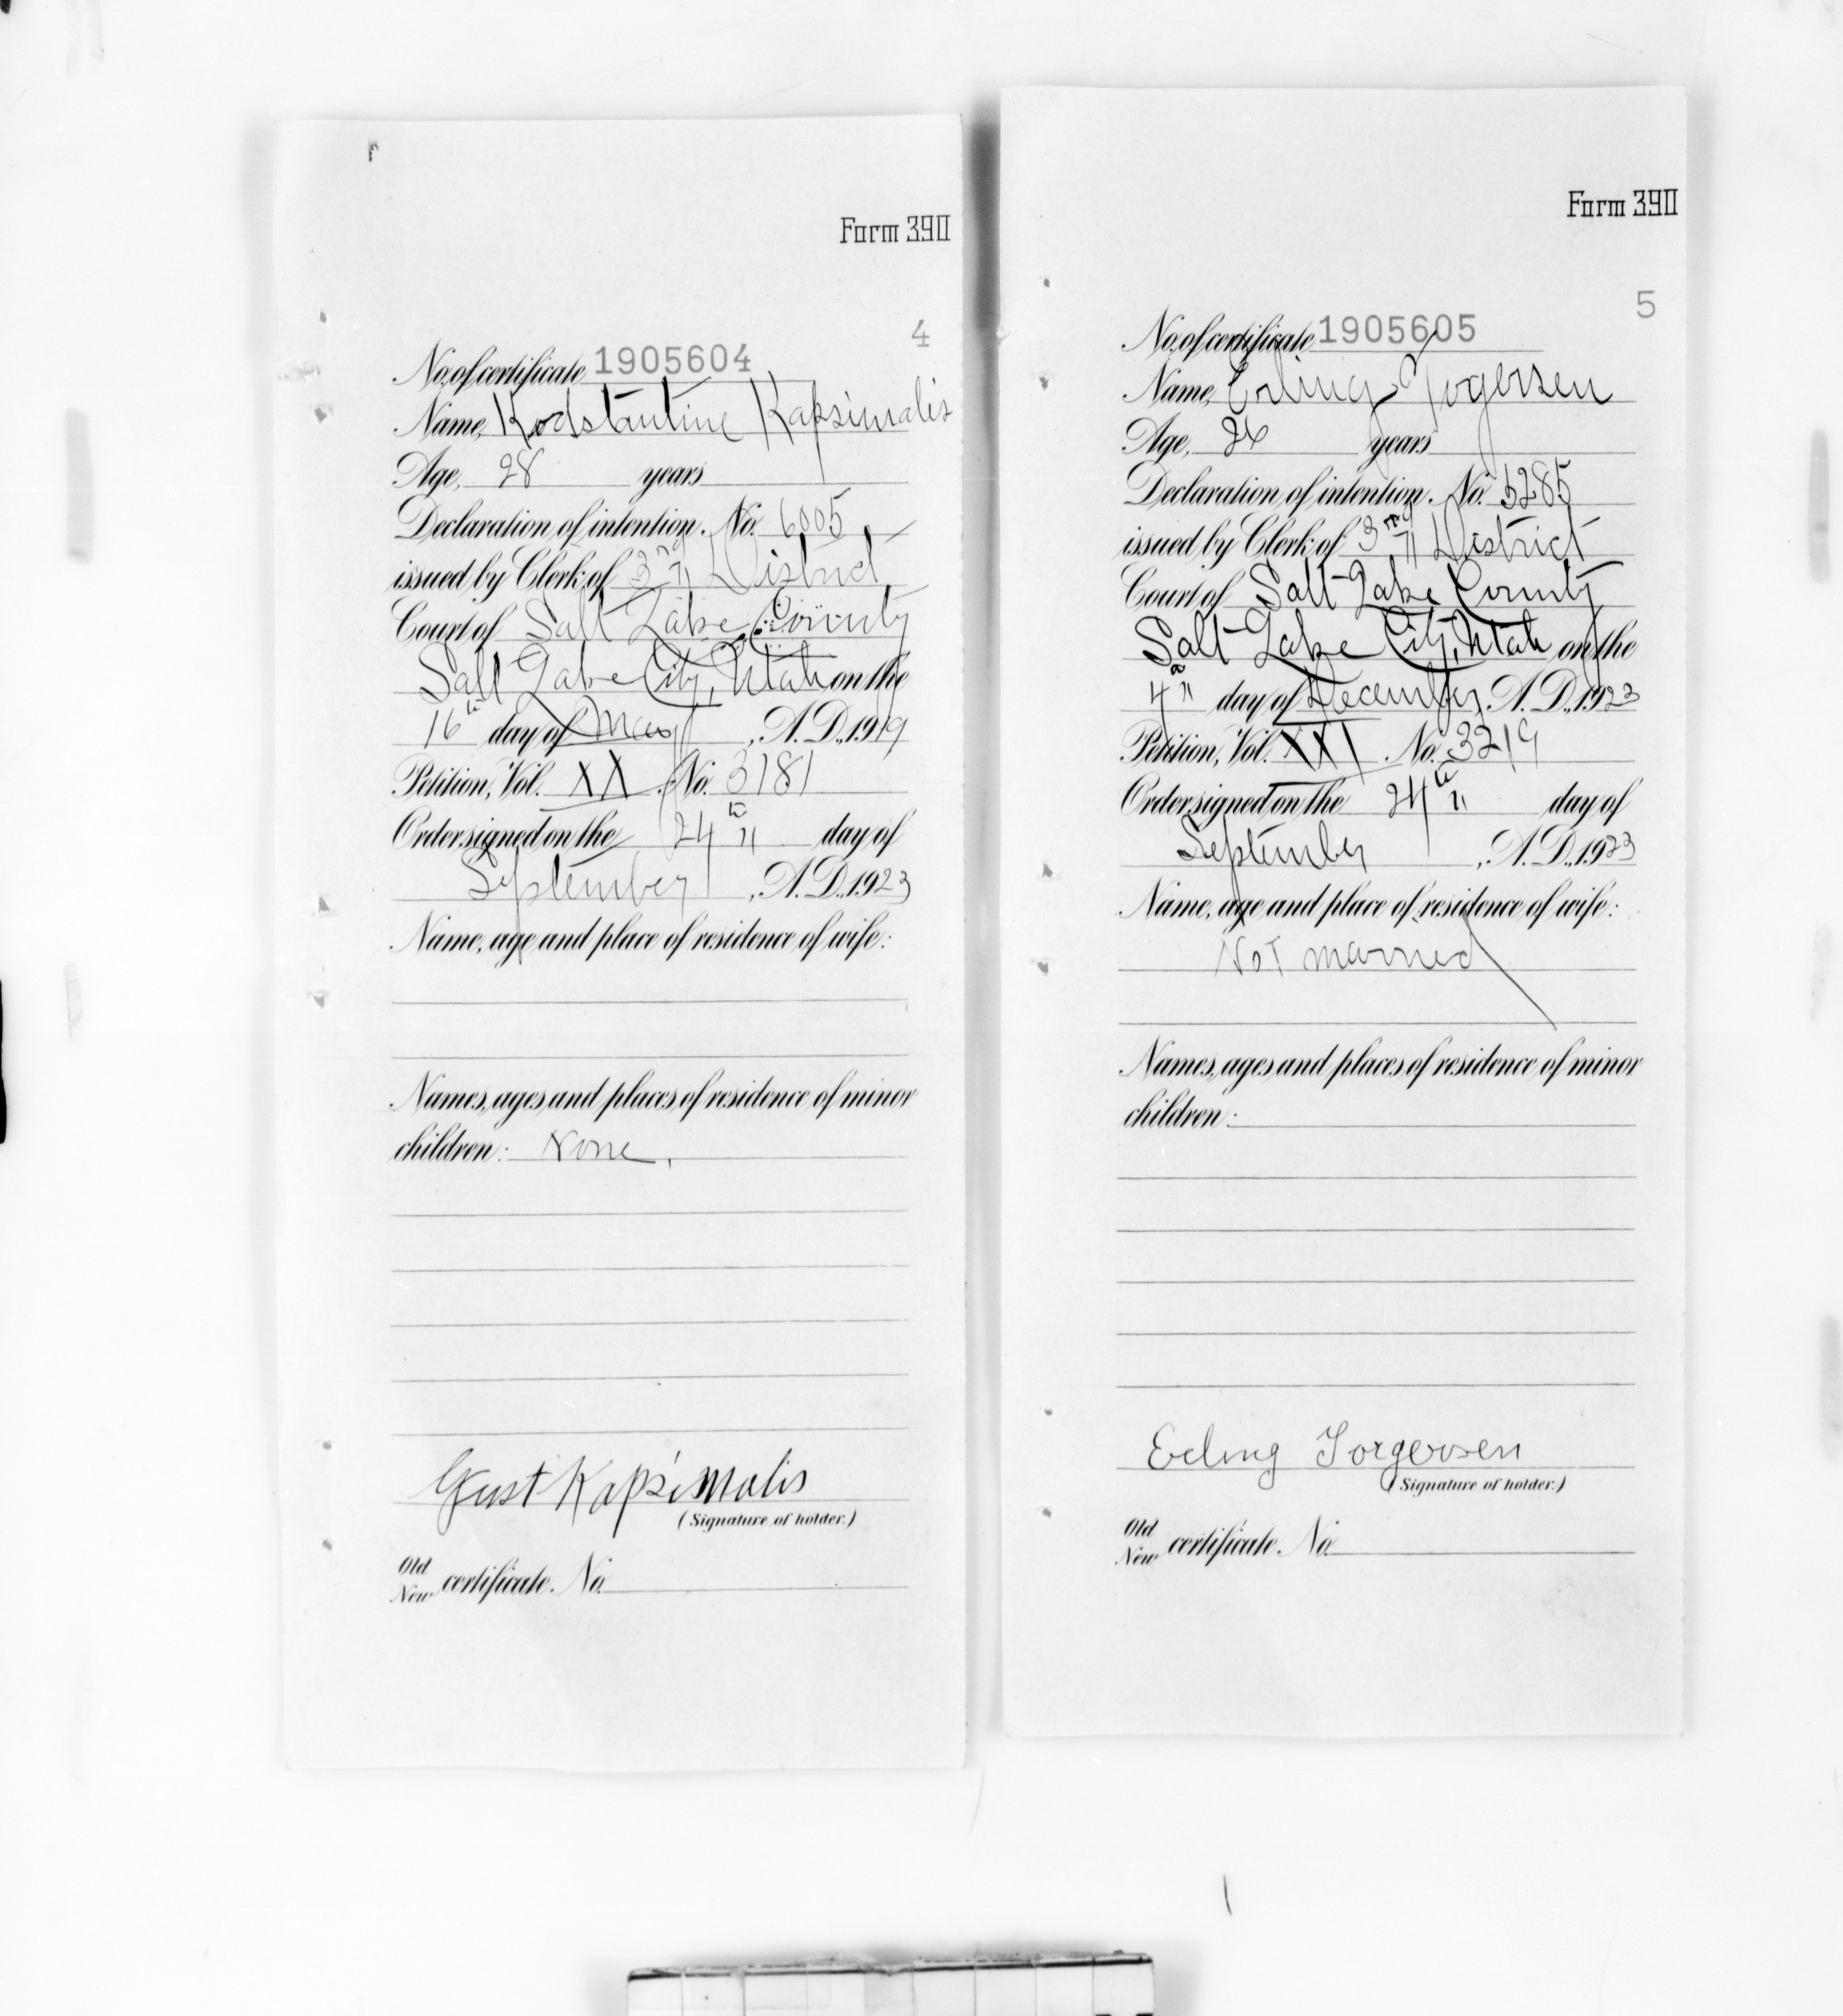 Form 390
4
No. of certificate 1905604
Name, Kodstantine Kapsimalis
Age, 28 years
Declaration of intention. No. 6005
issued by Clerk of 3rd District
Court of Salt Lake County
Salt Lake City, Utah on the
16th day of May, A.D., 1919
Petition, Vol. XX No. 3181
Order signed on the 24th day of
September, A.D., 1923
Name, age and place of residence of wife:
Names, ages and places of residence of minor
children: None.
Gust Kapsimalis
(Signature of holder.)
Old
New certificate. No.
Form 390
5
No. of certificate 1905605
Name, Erling Torgersen
Age, 26 years
Declaration of intention. No. 5285
issued by Clerk of 3rd District
Court of Salt Lake County
Salt Lake City, Utah on the
4th day of December, A.D., 1923
Petition, Vol. XXI No. 3219
Order signed on the 24th day of
September, A.D., 1923
Name, age and place of residence of wife:
Not married
Names, ages and places of residence of minor
children:
Erling Torgersen
(Signature of holder.)
Old
New certificate. No.